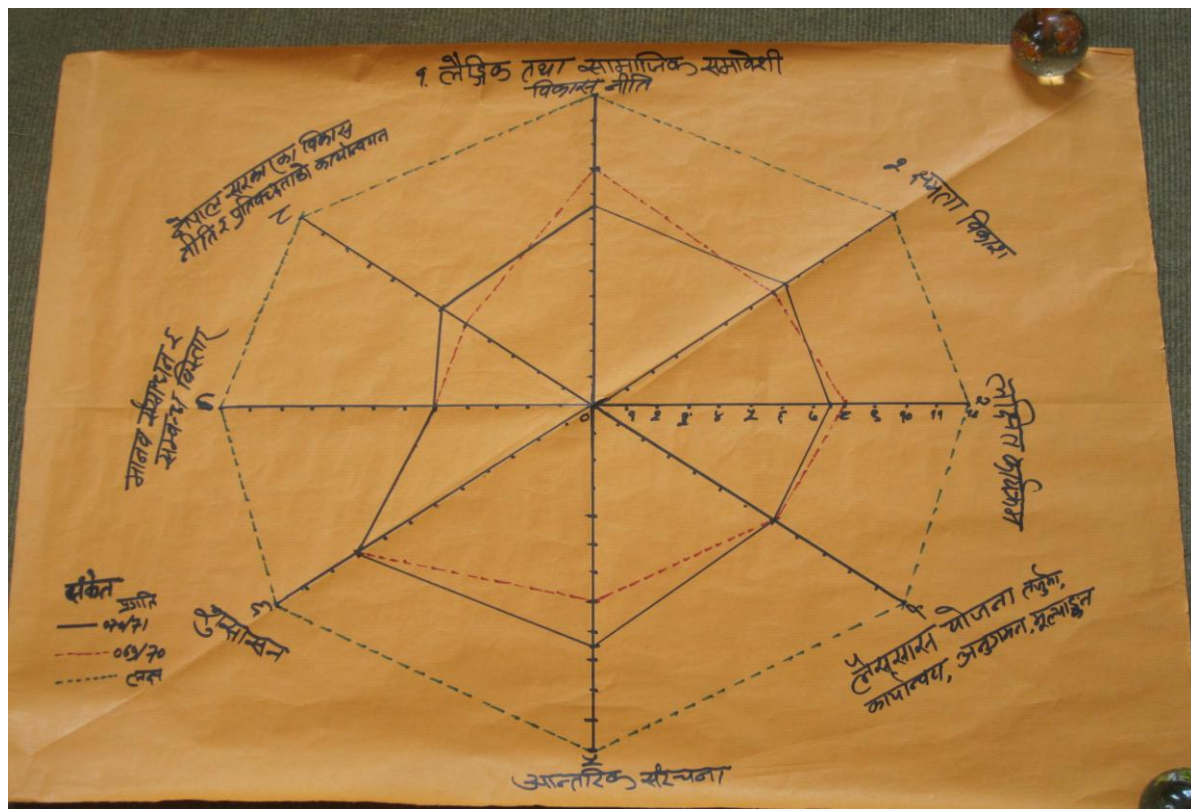 १. लैङ्गिक तथा सामाजिक समावेशी
विकास नीति
२ क्षमता विकास
३
लक्षित कार्यक्रम
४
लैससास योजना तर्जुमा,
कार्यान्वय, अनुगमन, मूल्याङ्कन
५
आन्तरिक संरचना
६
सुसासन
७
मानव संसाधन र
सम्बन्ध विस्तार
८
नेपाल सरकारका विकास
नीति र प्रतिवद्धताको कार्यान्वयन
0 १ २ ३ ४ ५ ६ ८ ९ १० ११ १२
संकेत
प्रगति
०७०/७१
०६९/७०
लक्ष्य